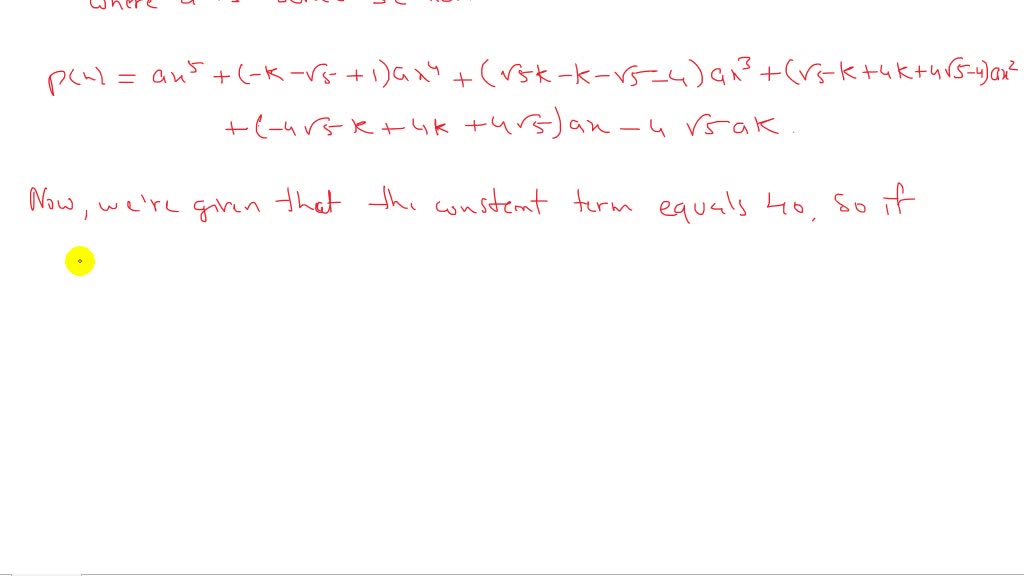 where a is
p(x) = ax⁵ + (-k - √5 + 1)ax⁴ + (√5k - k - √5 - 4)ax³ + (√5-k + 4k + 4√5-4)ax²
+ (-4√5k + 4k + 4√5)ax - 4√5ak.
Now, we're given that the constent term equals 40, so if